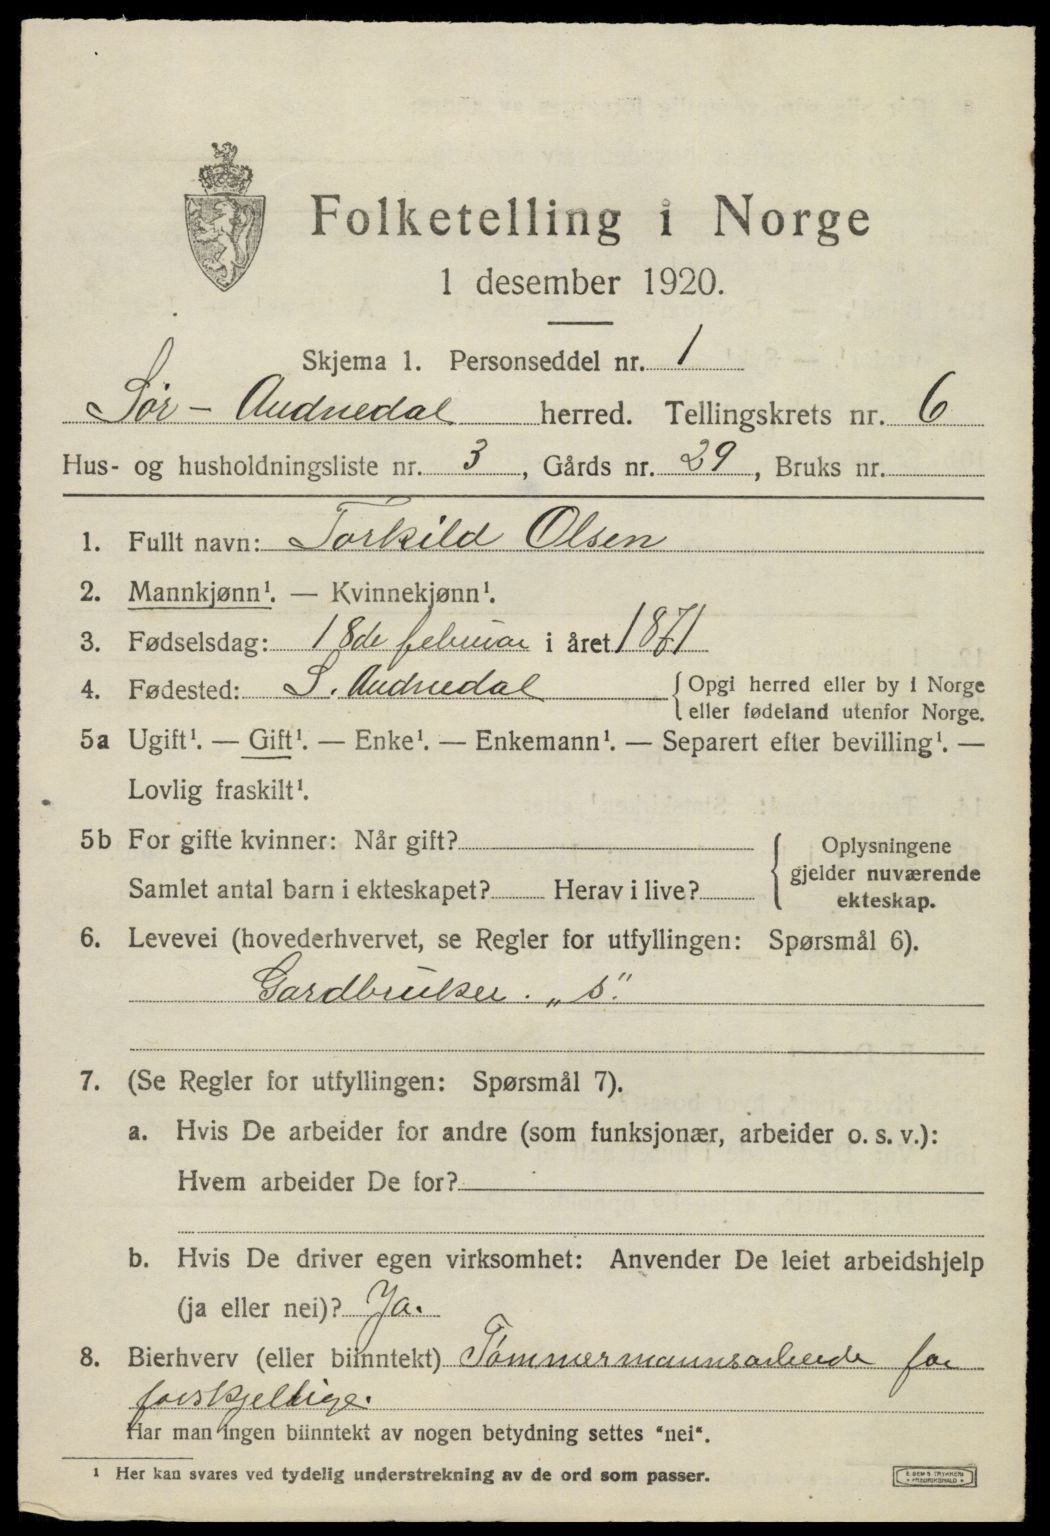 Folketelling i Norge
1 desember 1920.
Skjema 1. Personseddel nr. 1
Sør - Audnedal herred. Tellingskrets nr. 6
Hus- og husholdningsliste nr. 3, Gårds nr. 29, Bruks nr.
1. Fullt navn: Torkild Olsen
2. Mannkjønn¹. — Kvinnekjønn¹.
3. Fødselsdag: 18de februar i året 1871
4. Fødested: S. Audnedal { Opgi herred eller by i Norge
eller fødeland utenfor Norge.
5a Ugift¹. — Gift¹. — Enke¹. — Enkemann¹. — Separert efter bevilling¹. —
Lovlig fraskilt¹.
5b For gifte kvinner: Når gift?
Samlet antal barn i ekteskapet? Herav i live?
{ Oplysningene
gjelder nuværende
ekteskap.
6. Levevei (hovederhvervet, se Regler for utfyllingen: Spørsmål 6).
Gardbruker. „s".
7. (Se Regler for utfyllingen: Spørsmål 7).
a. Hvis De arbeider for andre (som funksjonær, arbeider o. s. v.):
Hvem arbeider De for?
b. Hvis De driver egen virksomhet: Anvender De leiet arbeidshjelp
(ja eller nei)? Ja.
8. Bierhverv (eller biinntekt) Tømmermannsarbeide for
forskjellige.
Har man ingen biinntekt av nogen betydning settes "nei".
¹ Her kan svares ved tydelig understrekning av de ord som passer.
E. SEM'S TRYKKERI
FREDRIKSHALD